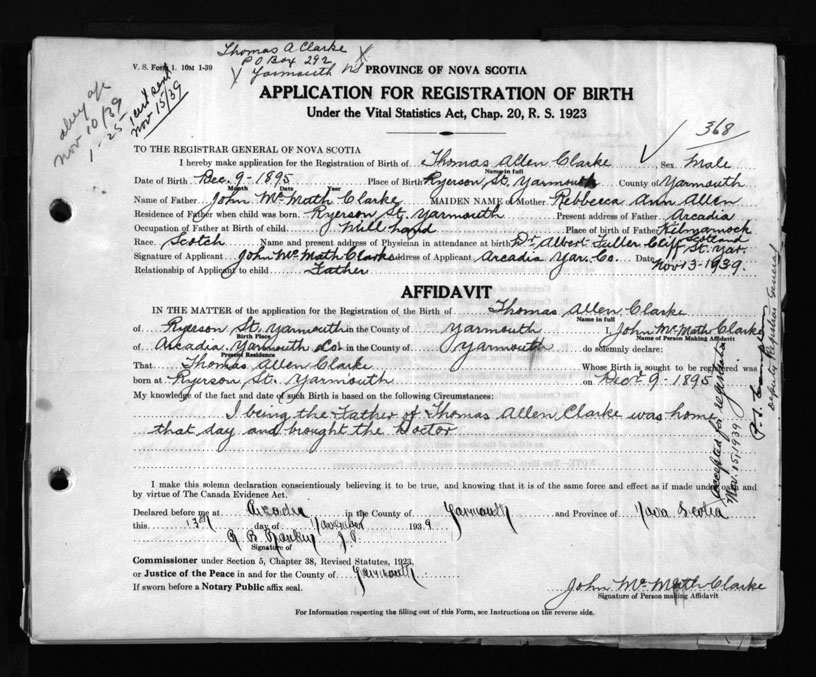 Thomas A Clarke
PO Box 292
Yarmouth NS
V. S. Form 1. 10M 1-39
Nov 10/39
1-25
1 cert sent
Nov 15/39
PROVINCE OF NOVA SCOTIA
APPLICATION FOR REGISTRATION OF BIRTH
Under the Vital Statistics Act, Chap. 20, R. S. 1923
368
TO THE REGISTRAR GENERAL OF NOVA SCOTIA
I hereby make application for the Registration of Birth of Thomas Allen Clarke, Sex Male
Name in full
Date of Birth Dec. 9-1895 Place of Birth Ryerson St, Yarmouth County of Yarmouth
Month Date Year
Name of Father John Mc Math Clarke MAIDEN NAME of Mother Rebbecca Ann Allen
Residence of Father when child was born. Ryerson St Yarmouth Present address of Father Arcadia
Occupation of Father at Birth of child Mill hand Place of birth of Father Kilmarnock Scotland
Race. Scotch Name and present address of Physician in attendance at birth Dr Albert Fuller Cliff St. Yar.
Signature of Applicant John Mc Math Clarke Address of Applicant, Arcadia Yar. Co. Date Nov 13-1939.
Relationship of Applicant to child Father
AFFIDAVIT
IN THE MATTER of the application for Registration of the Birth of Thomas Allen Clarke
Name in full
of Ryerson St. Yarmouth in the County of Yarmouth I, John Mc Math Clarke
Birth Place Name of Person Making Affidavit
of Arcadia Yarmouth Co. in the County of Yarmouth do solemnly declare:
Present Residence
That Thomas Allen Clarke Whose Birth is sought to be registered was
born at Ryerson St. Yarmouth on Dec. 9-1895
My knowledge of the fact and date of such Birth is based on the following Circumstances:
I being the Father of Thomas Allen Clarke was home
that day and brought the Doctor
I make this solemn declaration conscientiously believing it to be true, and knowing that it is of the same force and effect as if made under oath and
by virtue of The Canada Evidence Act.
Declared before me at Arcadia in the County of Yarmouth and Province of Nova Scotia
this 13th day of November 1939
R B Rankin J.P.
Signature of
Commissioner under Section 5, Chapter 38, Revised Statutes, 1923,
or Justice of the Peace in and for the County of Yarmouth
If sworn before a Notary Public affix seal.
John Mc Math Clarke
Signature of Person making Affidavit
For Information respecting the filling out of this Form, see Instructions on the reverse side.
Accepted for registration
Nov. 15, 1939
Deputy Registrar General